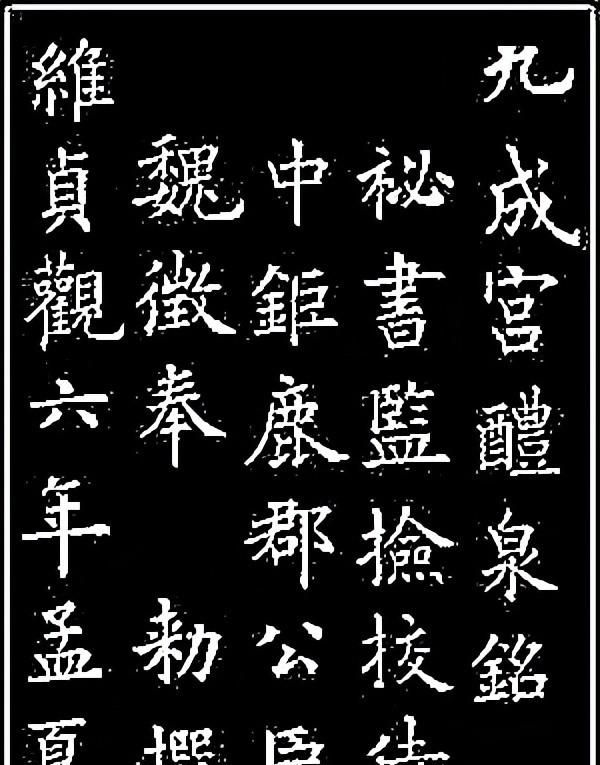 九成宮醴泉銘
祕書監撿挍
中鉅鹿郡公
魏徵奉勑
維貞觀六年孟